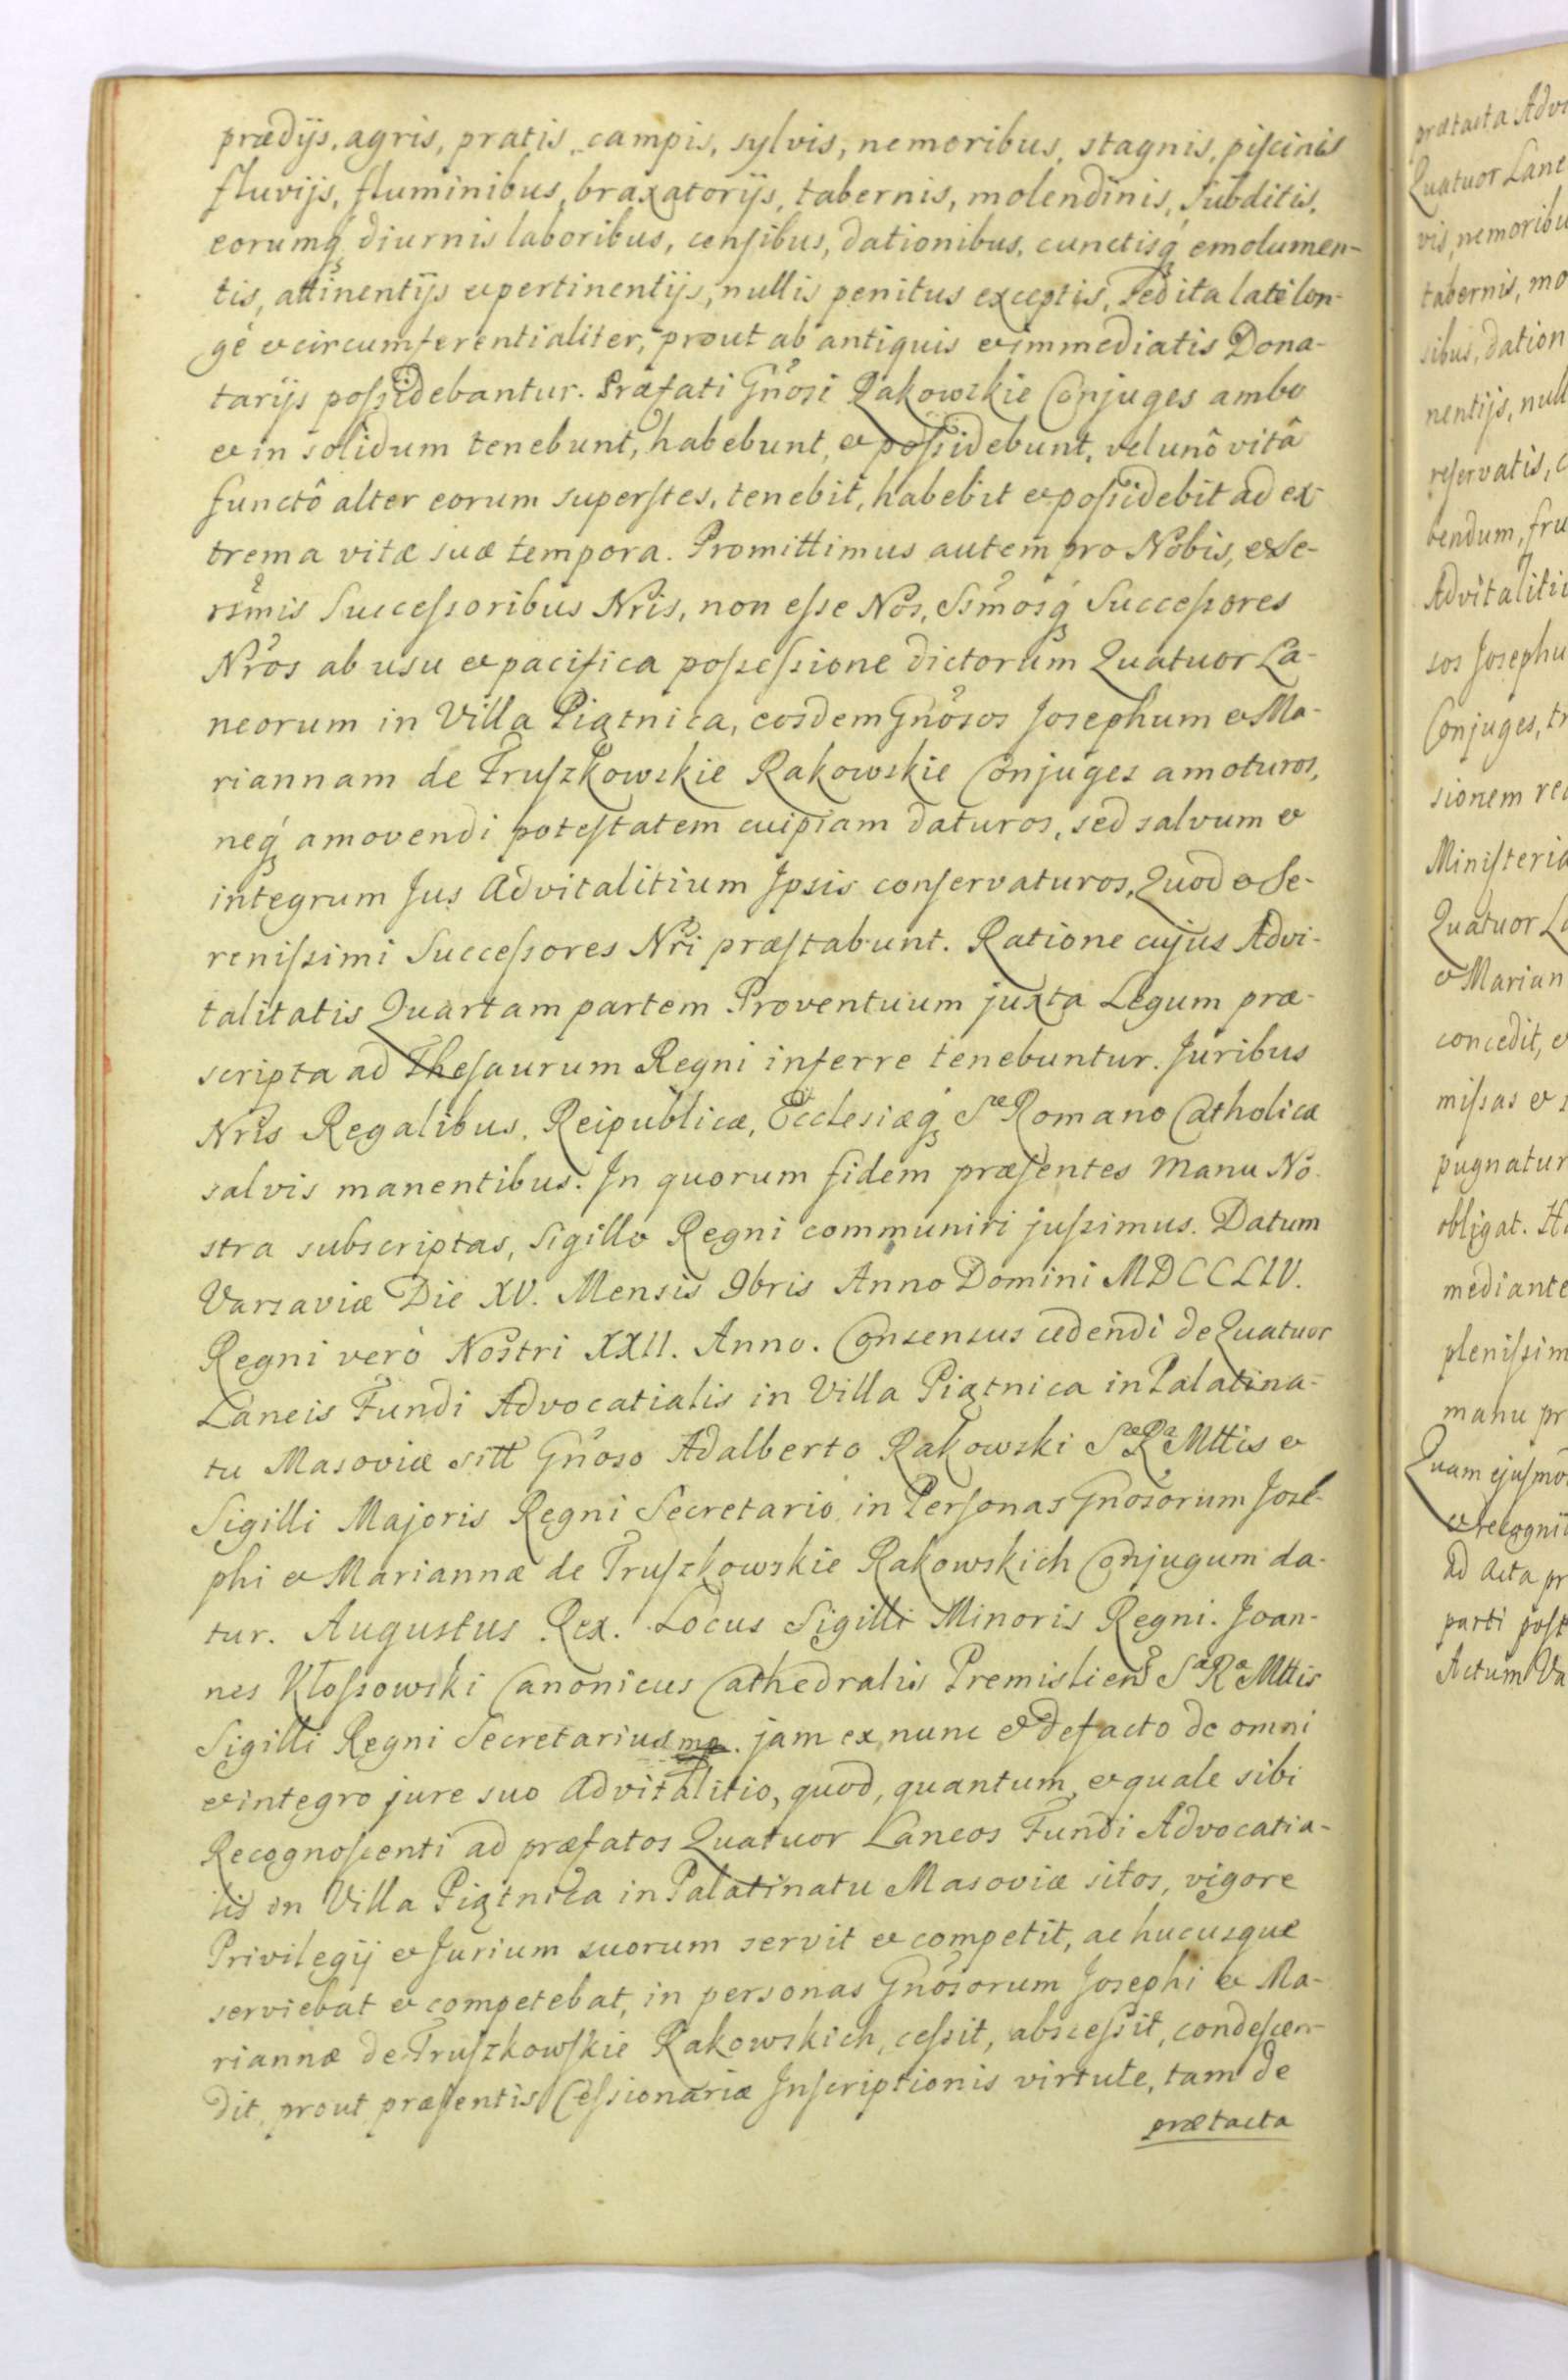 prædijs, agris, pratis, campis, sylvis, nemoribus, stagnis, piſcinis
fluvijs, fluminibus, braxatorijs, tabernis, molendinis, Subditis,
eorumq́ʒ diurnis laboribus, cenſibus, dationibus, cunctisq́ʒ emolumen-
tis, attinentijs et pertinentijs, nullis penitus exceptis, Sed ita latè lon-
gè et circumferentialiter, prout ab antiquis et immediatis Dona-
tarijs poſsidebantur. Præfati Gn̄osi Rakowskie Conjuges ambo
et in solidum tenebunt, habebunt, et poſsidebunt, vel unô vitâ
functô alter eorum superſtes, tenebit, habebit et poſsidebit ad ex-
trema vitæ suæ tempora. Promittimus autem pro Nobis, et Se-
rsm̄is Succeſsoribus Nr̄is, non eſse Nos, Ssm̄osq́ʒ Succeſsores
Nr̄os ab usu et pacifica poſseſsione dictorum Quatuor La-
neorum in Villa Piątnica, eosdem Gn̄osos Josephum et Ma-
riannam de Truſzkowskie Rakowskie Conjuges amoturos,
neq́ʒ amovendi poteſtatem cuipiam daturos, sed salvum et
integrum Jus Advitalitium Ipsis conſervaturos, Quod et Se-
reniſsimi Succeſsores Nr̄i præſtabunt. Ratione cujus Advi-
talitatis Quartam partem Proventuum juxta Legum præ-
scripta ad Theſaurum Regni inferre tenebuntur. Juribus
Nr̄is Regalibus, Reipublicæ, Eccleſiæq́ʒ Sæ Romano Catholicæ
salvis manentibus. In quorum fidem præſentes Manu No-
stra subscriptas, Sigillo Regni communiri juſsimus. Datum
Varsaviæ Die XV. Mensis 9bris Anno Domini MDCCLIV.
Regni verò Nostri XXII. Anno. Consensus cedendi de Quatuor
Laneis Fundi Advocatialis in Villa Piątnica in Palatina-
tu Masoviæ sitt Gn̄oso Adalberto Rakowski Sæ Ræ Mttis et
Sigilli Majoris Regni Secretario in Perſonas Gn̄osorum Jose-
phi et Mariannæ de Truſzkowskie Rakowskich Conjugum da-
tur. Augustus Rex. Locus Sigilli Minoris Regni. Joan-
nes Kłoſsowski Canonicus Cathedralis Premislienſ Sæ Ræ Mttis
Sigilli Regni Secretarius mp. jam ex nunc et defacto de omni
et integro jure suo Advitalitio, quod, quantum, et quale sibi
Recognoſcenti ad præfatos Quatuor Laneos Fundi Advocatia-
lis in Villa Piątnica in Palatinatu Masoviæ sitos, vigore
Privilegij et Jurium suorum servit et competit, ac hucusque
serviebat et competebat, in personas Gn̄osorum Josephi et Ma-
riannæ de Truſzkowſkie Rakowskich, ceſsit, absceſsit, condeſcen-
dit, prout præſentis Ceſsionariæ Inſcriptionis virtute, tam de
prætacta
prætacta Advi
Quatuor Lane
vis, nemoribu
tabernis, mo
sibus, dation
nentijs, null
reſervatis, c
bendum, fru
Advitalitii
sos Josephu
Conjuges, tr
sionem re
Ministeria
Quatuor La
et Marian
concedit, e
miſsas et
pugnatur
obligat.
mediante
pleniſsim
manu pr
Quam ejuſmo
et recogni
ad acta pr
parti poſt
Actum Va